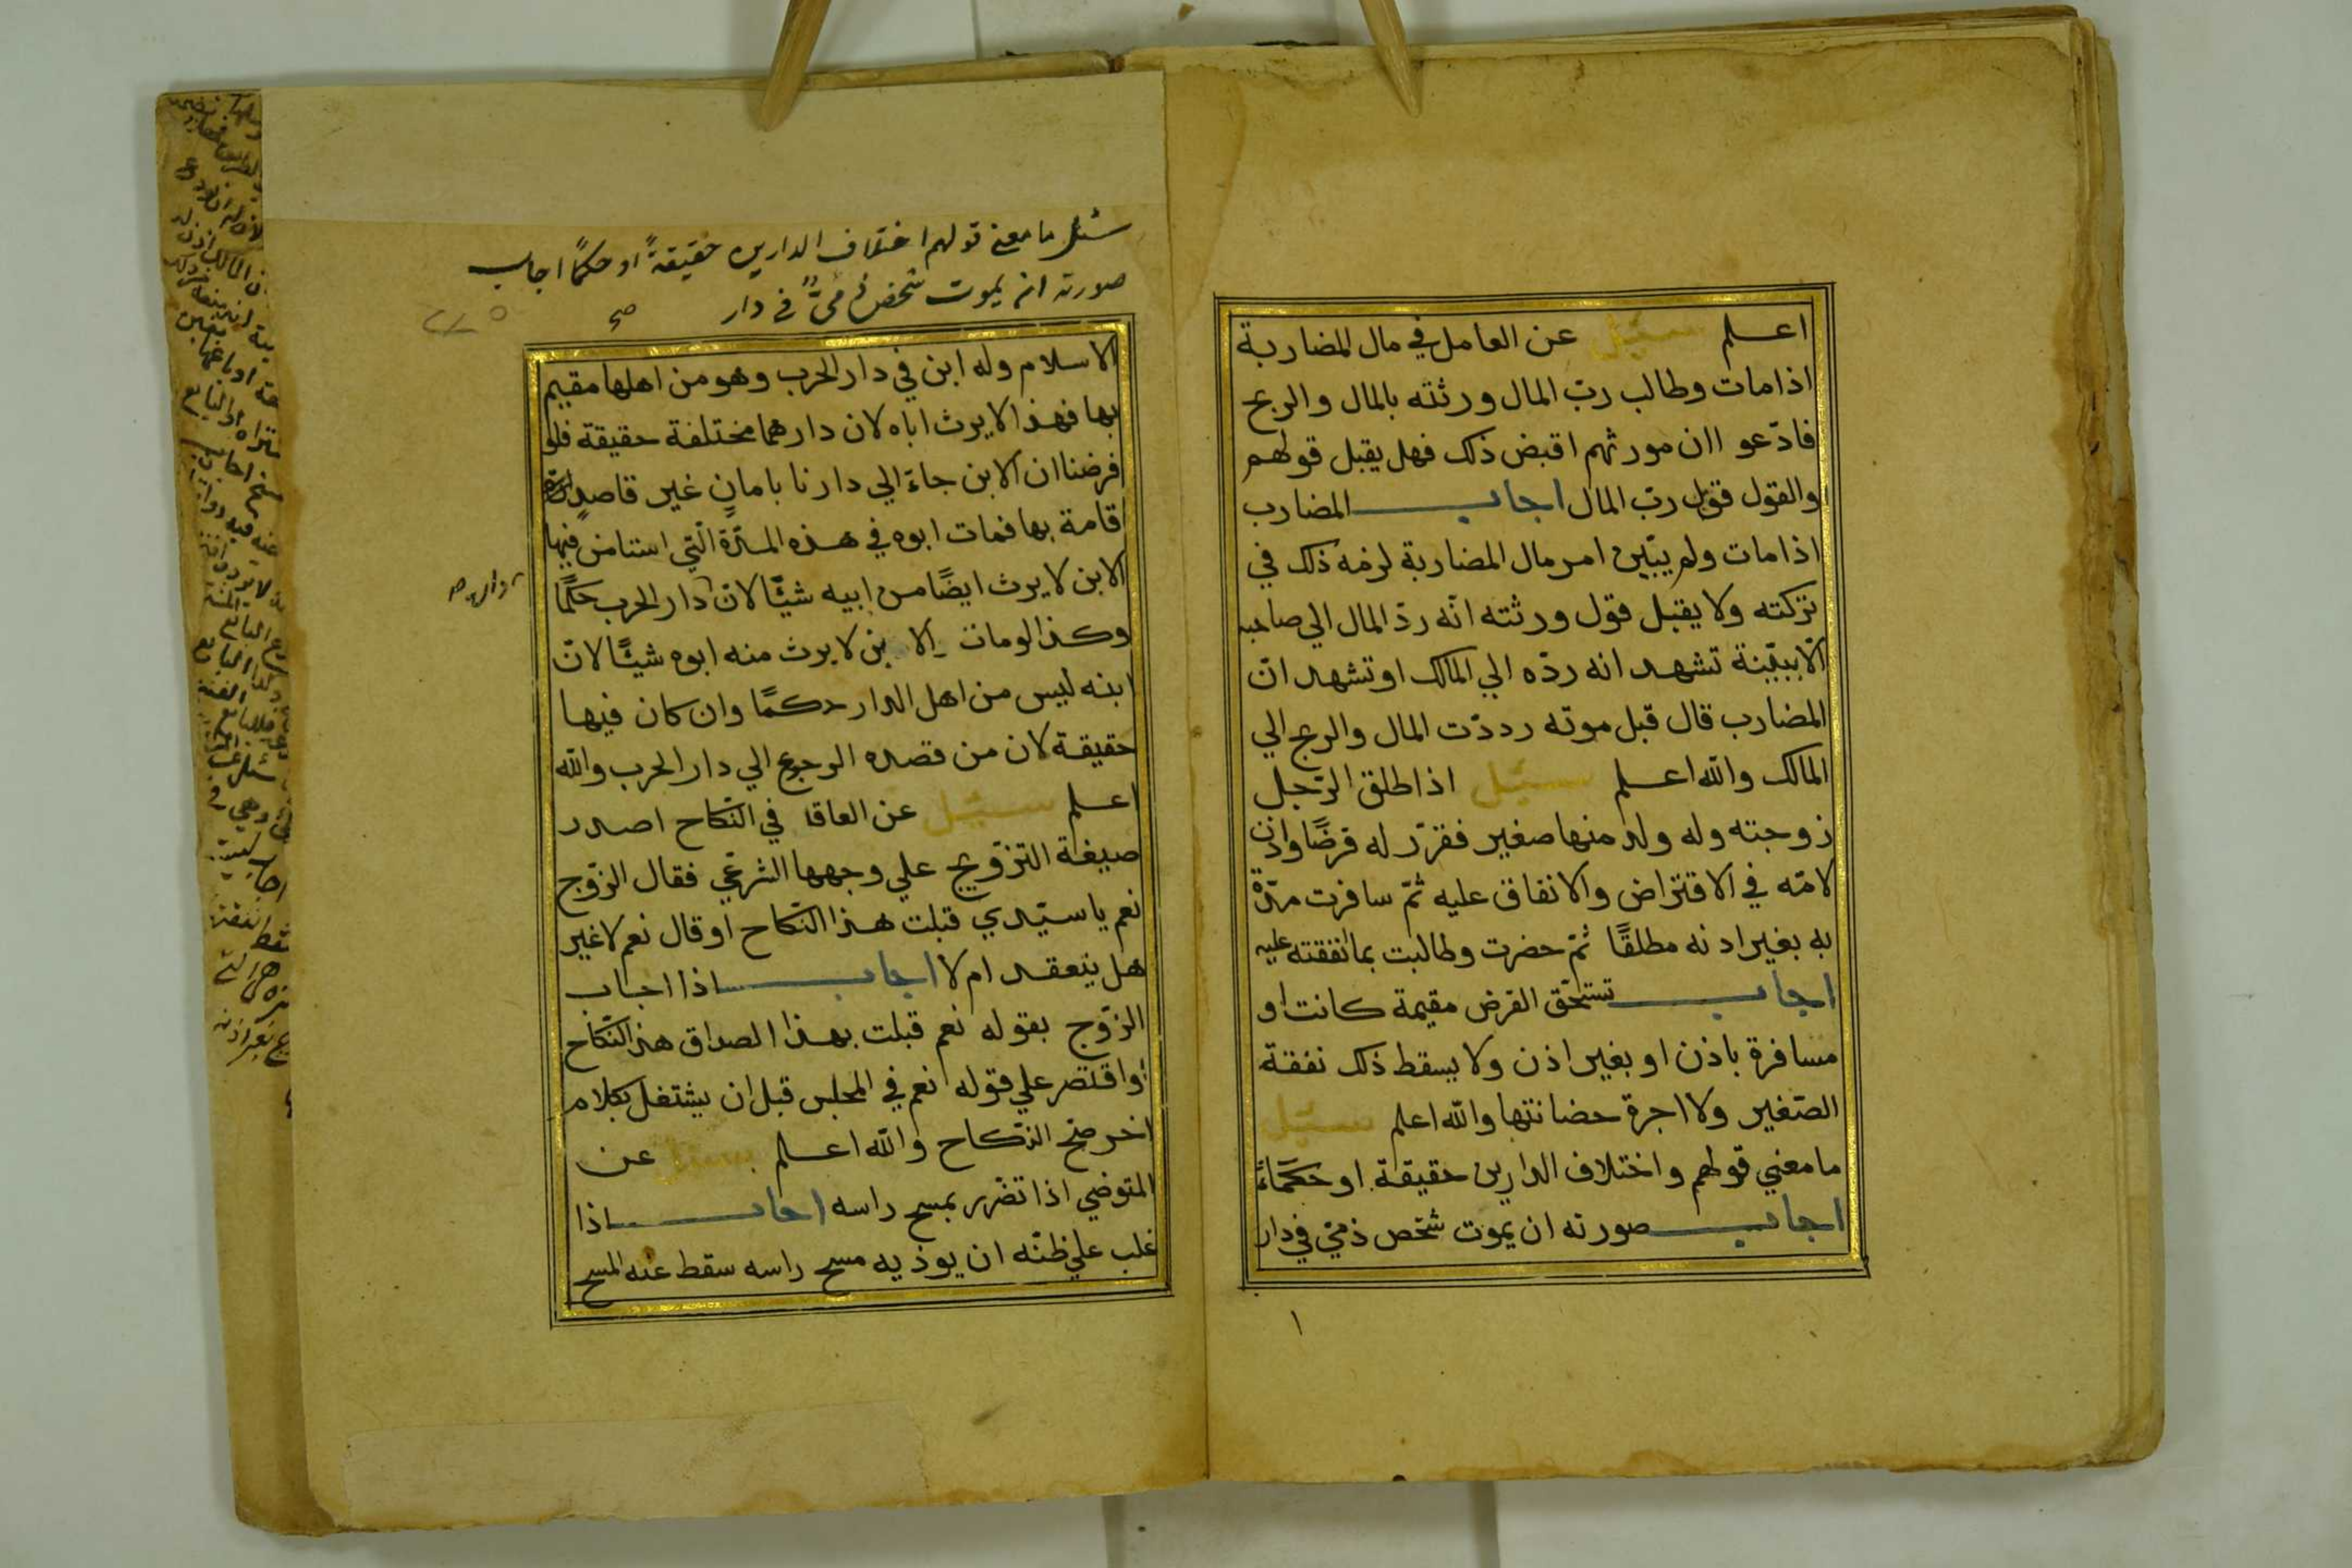 اعلم سئيل عن العامل في مال المضاربة
اذا مات وطالب ربّ المال ورثته بالمال والربح
فادّعو اان مورثهم اقبض ذلك فهل يقبل قولهم
والقول قول ربّ المال اجاب المضارب
اذا مات ولم يبّين امر مال المضاربة لزمه ذلك في
تركته ولا يقبل قول ورثته انّه ردّ المال الي صاحبه
الّا ببيّنة تشهد انه ردّه الي المالك او تشهد انّ
المضارب قال قبل موته رددّت المال والربح الي
المالك والله اعلم سئيل اذا طلق الرّجل
زوجته وله ولد منها صغير فقرّر له فرضًا واذن
لامّه في الاقتراض والانفاق عليه ثمّ سافرت مدّة
به بغير اذنه مطلقًا ثمّ حضرت وطالبت بما انفقته عليه
اجاب تستحّق الفرض مقيمة كانت او
مسافرة باذن او بغير اذن ولا يسقط ذلك نفقة
الصّغير ولا اجرة حضانتها والله اعلم سئيل
ما معني قولهم واختلاف الدارين حقيقة او حكمًا
اجاب صورته ان يموت شخص ذمّي في دار
١
سئل ما معنى قولهم اختلاف الدارين حقيقةً او حكمًا اجاب
صورته ان يموت شخص ذمىٌّ فى دار صح
الاسلام وله ابن في دار الحرب وهو من اهلها مقيم
بها فهذا لا يرث اباه لان دارهما مختلفة حقيقة فلو
فرضنا ان الابن جاءَ الي دارنا بامانٍ غير قاصدٍ
قامة بها فمات ابوه في هذه المدّة الّتي استامن فيها
الابن لا يرث ايضًا من ابيه شيًّا لانّ دار الحرب حكمًا
وكذا لو مات الابن لا يرث منه ابوه شيئًا لانّ
ابنه ليس من اهل الدار حكمًا وان كان فيها
حقيقة لان من قصده الرجوع الي دار الحرب والله
اعلم سئيل عن العاقد في النّكاح اصدر
صيغة التزّويج علي وجهها الشرعّي فقال الزّوج
نعم يا سيّدي قبلت هذا النّكاح او قال نعم لا غير
هل ينعقد ام لا اجاب اذا اجاب
الزّوج بقوله نعم قبلت بهذا الصداق هذا النّكاح
او اقتصر علي قوله نعم في المجلس قبل ان يشتغل بكلام
اخر صّح النّكاح والله اعلم سئيل عن
المتوضي اذا تضّرر بمسح راسه اجاب اذا
غلب علي ظنّه ان يوذيه مسح راسه سقط عنه المسح